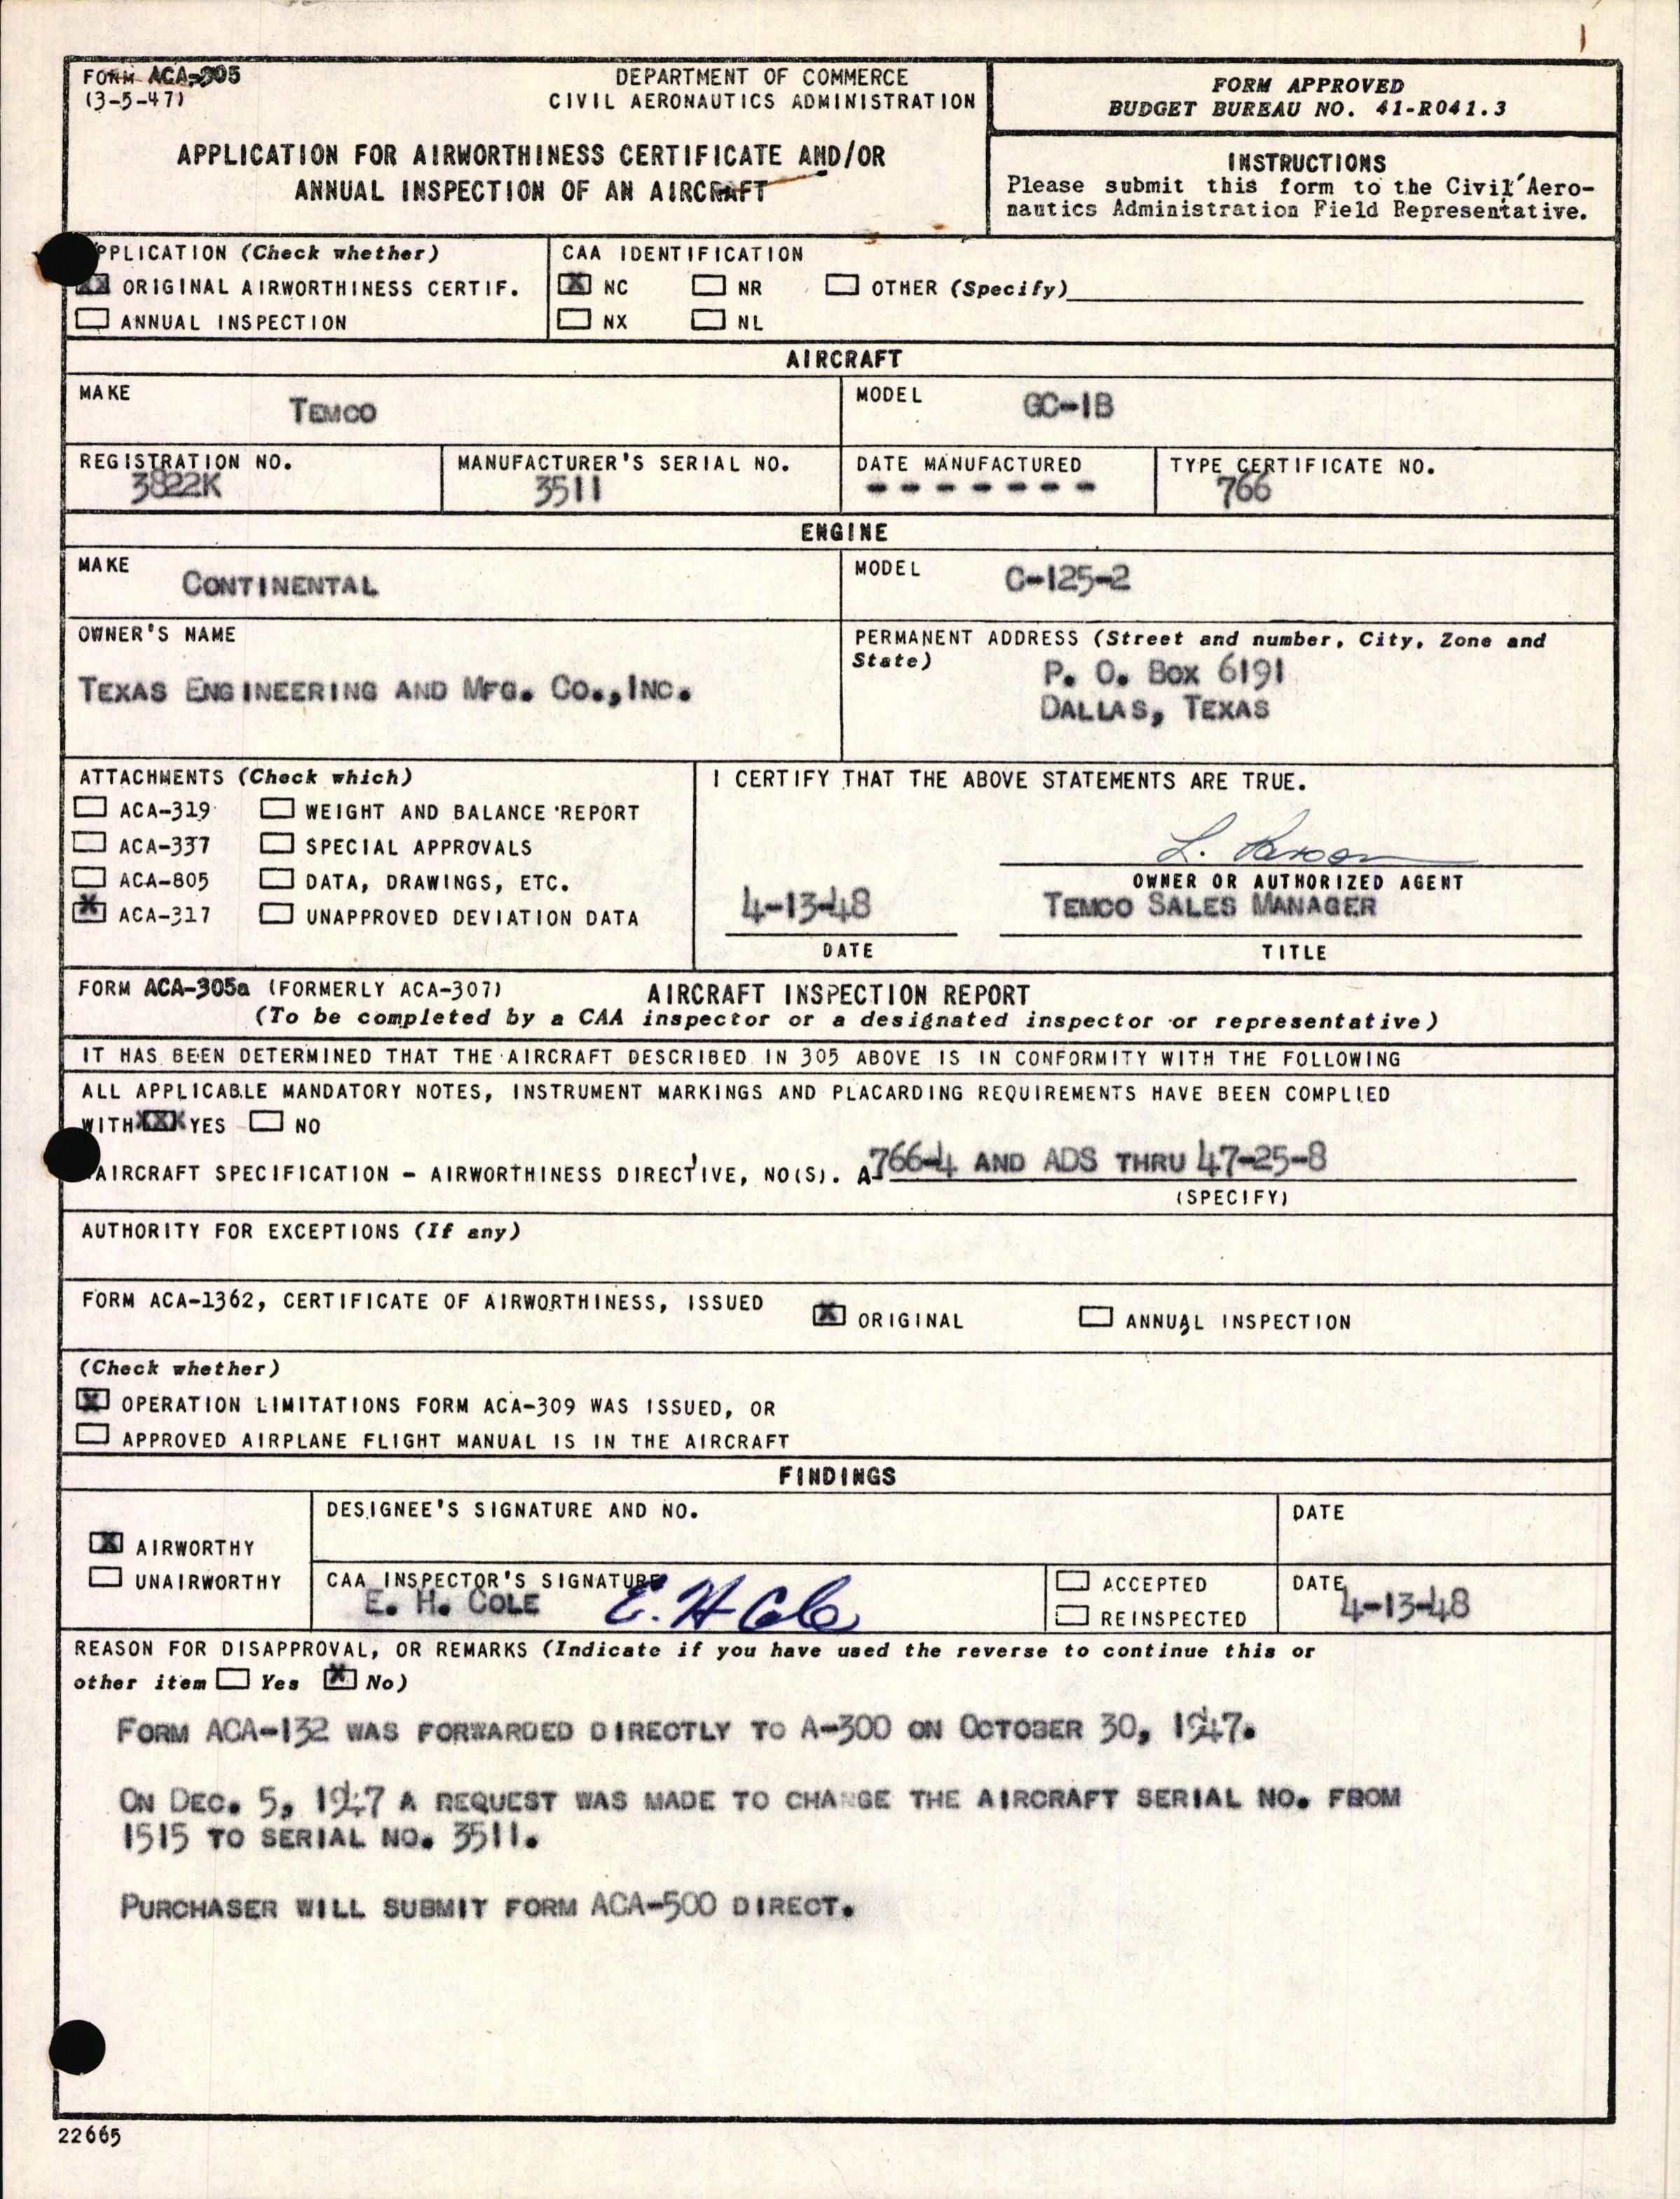 FORM ACA-305
(3-5-47)
DEPARTMENT OF COMMERCE
CIVIL AERONAUTICS ADMINISTRATION
APPLICATION FOR AIRWORTHINESS CERTIFICATE AND/OR
ANNUAL INSPECTION OF AN AIRCRAFT
FORM APPROVED
BUDGET BUREAU NO. 41-R041.3
INSTRUCTIONS
Please submit this form to the Civil Aero-
nautics Administration Field Representative.
PPLICATION (Check whether)
XX ORIGINAL AIRWORTHINESS CERTIF.
ANNUAL INSPECTION
CAA IDENTIFICATION
X NC NR OTHER (Specify)
NX NL
AIRCRAFT
MAKE
TEMCO
MODEL
GC-1B
REGISTRATION NO.
3822K
MANUFACTURER'S SERIAL NO.
3511
DATE MANUFACTURED
- - - - - - -
TYPE CERTIFICATE NO.
766
ENGINE
MAKE
CONTINENTAL
MODEL
C-125-2
OWNER'S NAME
TEXAS ENGINEERING AND MFG. CO.,INC.
PERMANENT ADDRESS (Street and number, City, Zone and
State)
P. O. BOX 6191
DALLAS, TEXAS
ATTACHMENTS (Check which)
ACA-319 WEIGHT AND BALANCE REPORT
ACA-337 SPECIAL APPROVALS
ACA-805 DATA, DRAWINGS, ETC.
X ACA-317 UNAPPROVED DEVIATION DATA
I CERTIFY THAT THE ABOVE STATEMENTS ARE TRUE.
L.
OWNER OR AUTHORIZED AGENT
4-13-48 TEMCO SALES MANAGER
DATE TITLE
FORM ACA-305a (FORMERLY ACA-307) AIRCRAFT INSPECTION REPORT
(To be completed by a CAA inspector or a designated inspector or representative)
IT HAS BEEN DETERMINED THAT THE AIRCRAFT DESCRIBED IN 305 ABOVE IS IN CONFORMITY WITH THE FOLLOWING
ALL APPLICABLE MANDATORY NOTES, INSTRUMENT MARKINGS AND PLACARDING REQUIREMENTS HAVE BEEN COMPLIED
WITH XXX YES NO
AIRCRAFT SPECIFICATION - AIRWORTHINESS DIRECTIVE, NO(S). A-766-4 AND ADS THRU 47-25-8
(SPECIFY)
AUTHORITY FOR EXCEPTIONS (If any)
FORM ACA-1362, CERTIFICATE OF AIRWORTHINESS, ISSUED X ORIGINAL ANNUAL INSPECTION
(Check whether)
X OPERATION LIMITATIONS FORM ACA-309 WAS ISSUED, OR
APPROVED AIRPLANE FLIGHT MANUAL IS IN THE AIRCRAFT
FINDINGS
X AIRWORTHY
UNAIRWORTHY
DESIGNEE'S SIGNATURE AND NO.
DATE
CAA INSPECTOR'S SIGNATURE
E. H. COLE E. H Cole
ACCEPTED
REINSPECTED
DATE
4-13-48
REASON FOR DISAPPROVAL, OR REMARKS (Indicate if you have used the reverse to continue this or
other item Yes X No)
FORM ACA-132 WAS FORWARDED DIRECTLY TO A-300 ON OCTOBER 30, 1947.
ON DEC. 5, 1947 A REQUEST WAS MADE TO CHANGE THE AIRCRAFT SERIAL NO. FROM
1515 TO SERIAL NO. 3511.
PURCHASER WILL SUBMIT FORM ACA-500 DIRECT.
22665